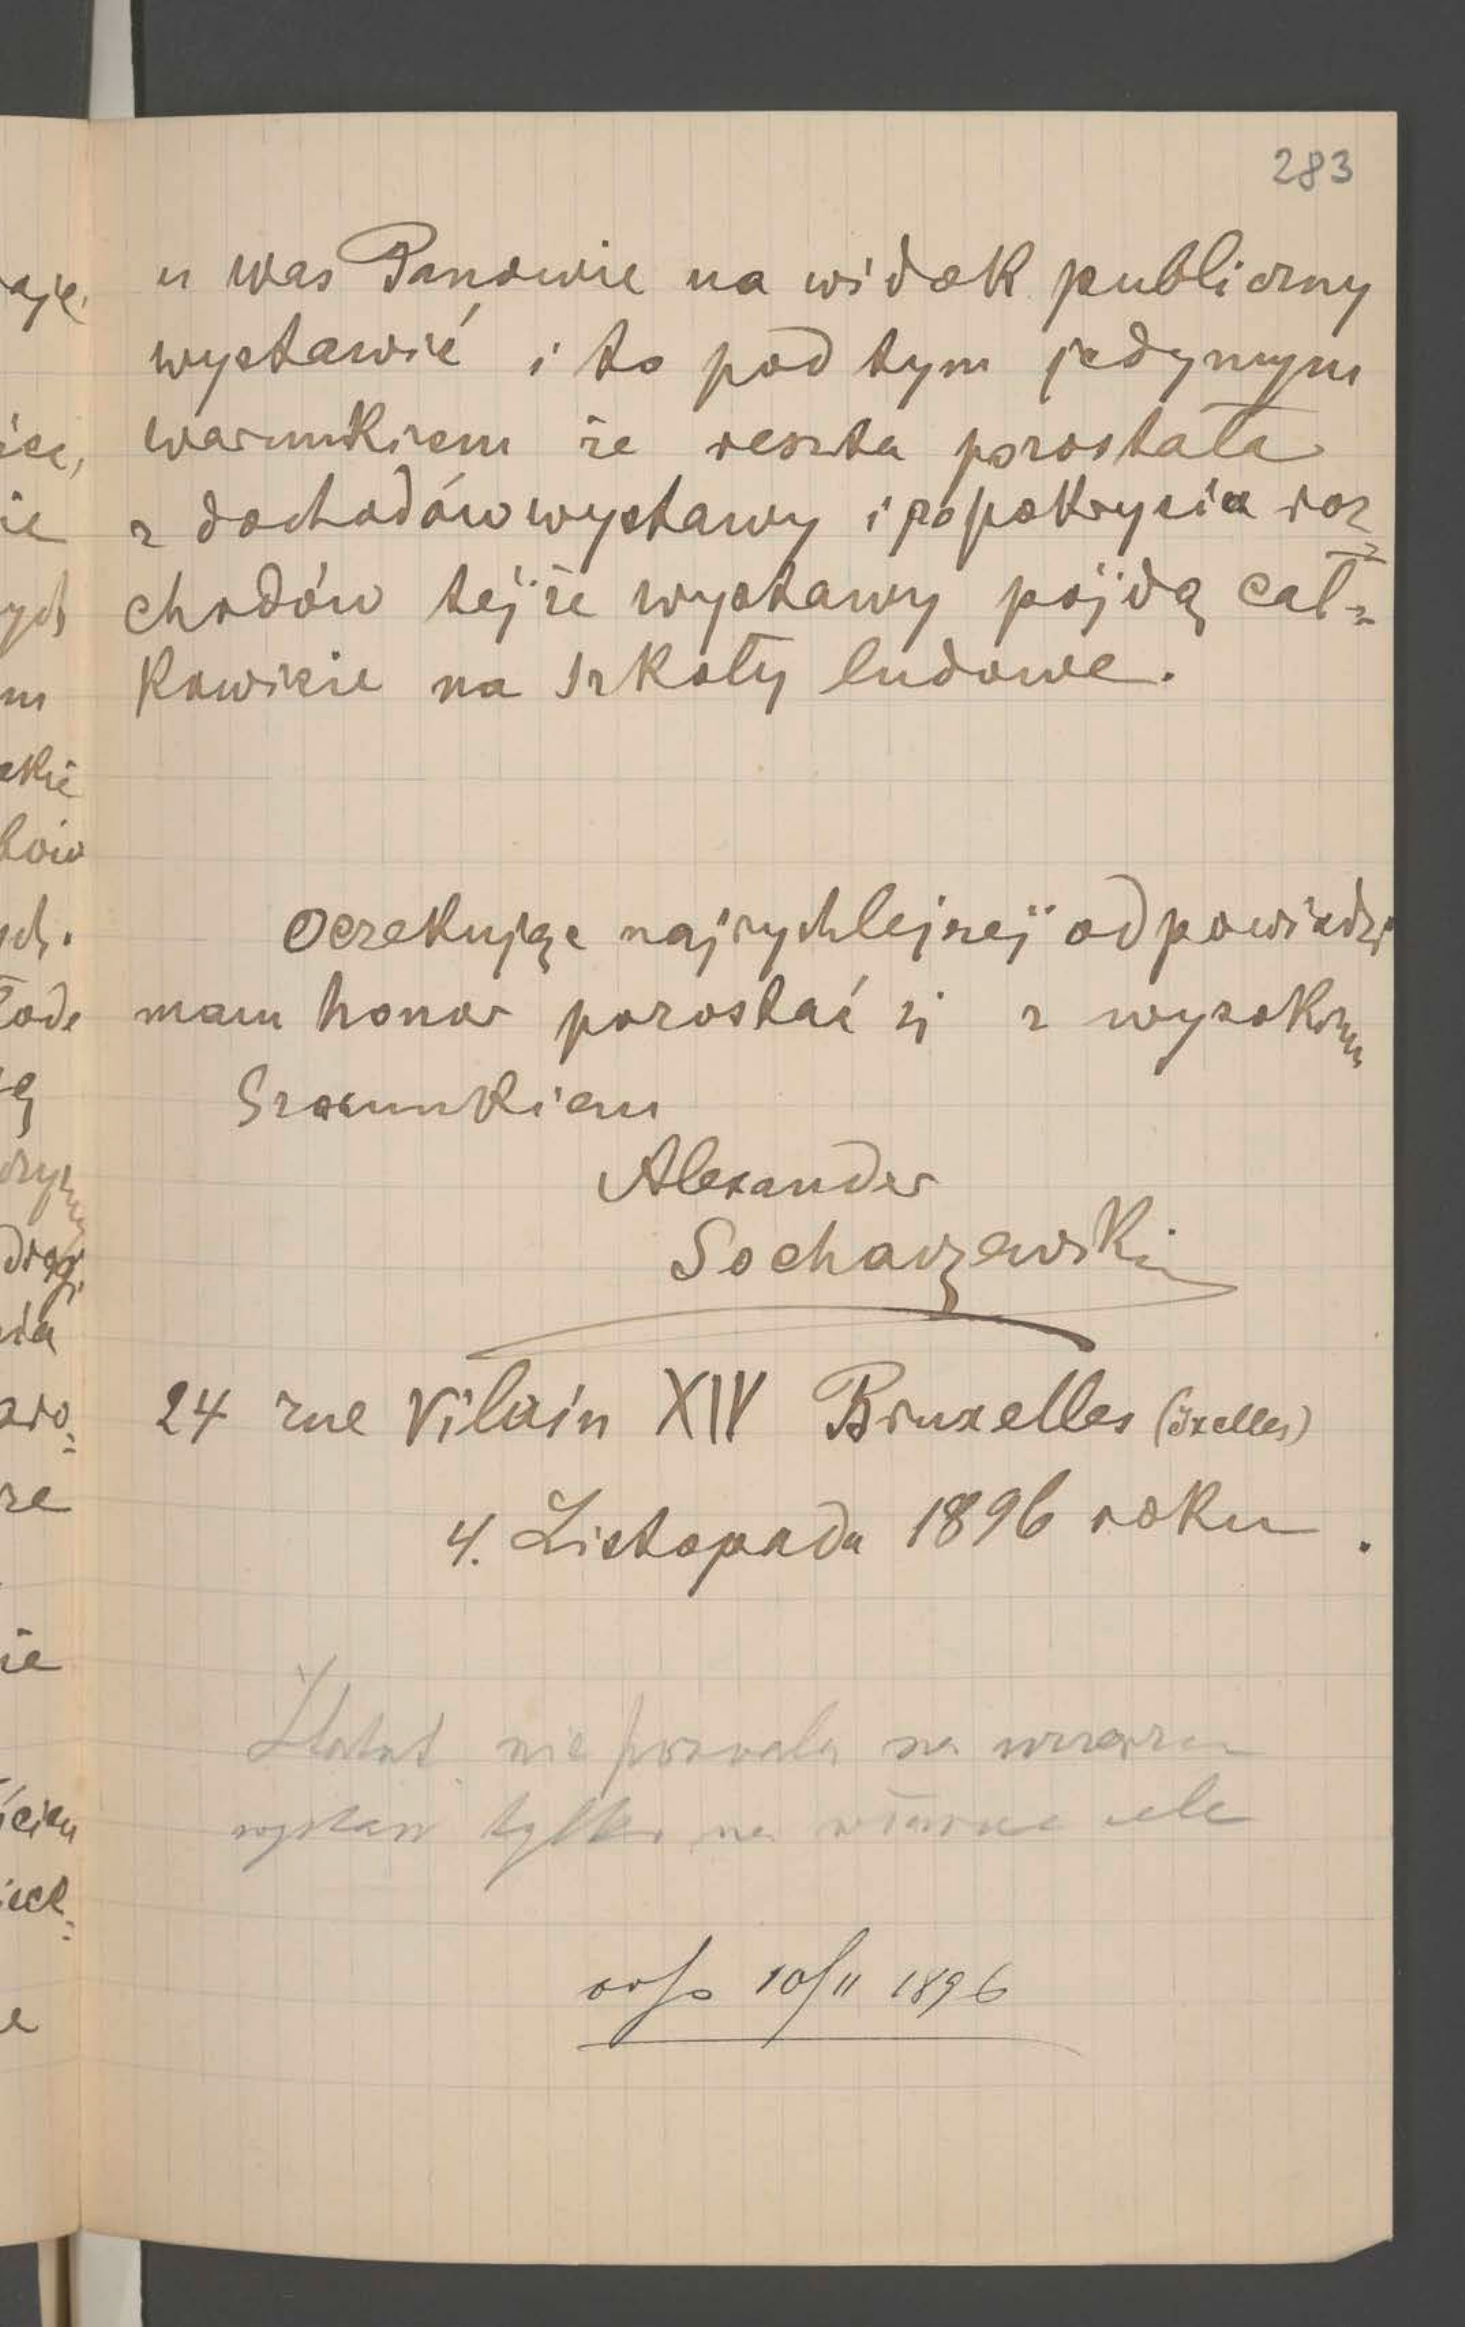 283
u was Panowie na widok publiczny
wystawić i to pod tym jedynym
warunkiem że reszta pozostała
z dochodów wystawy i po pokrycia roz=
chodów tejże wystawy pójdą cał=
kowicie na szkoły ludowe.
Oczekując najrychlejszej odpowiedzi
mam honor pozostać z wysokim
Szacunkiem
Alexander
Sochaczewski
24 rue Vilain XIV Bruxelles (Ixelles)
4. Listopada 1896 roku.
Statut nie pozwala na
wystaw tylko na własne cele
10/11 1896